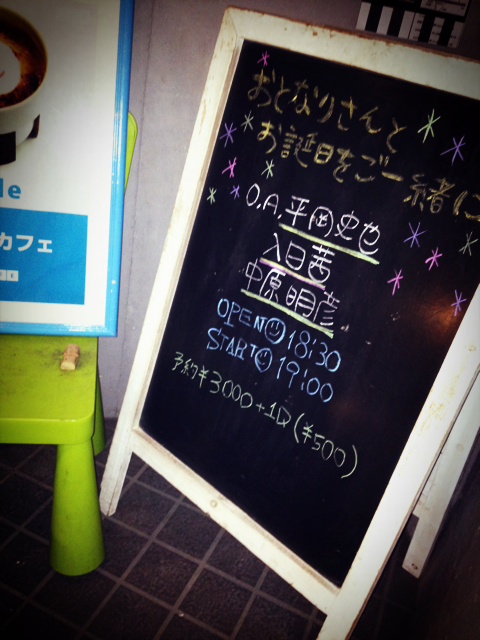 おとなりさんと
お誕生日をご一緒に
O.A. 平岡史也
入日茜
中原明彦
OPEN 18:30
START 19:00
予約¥3000+1D(¥500)
de
カフェ